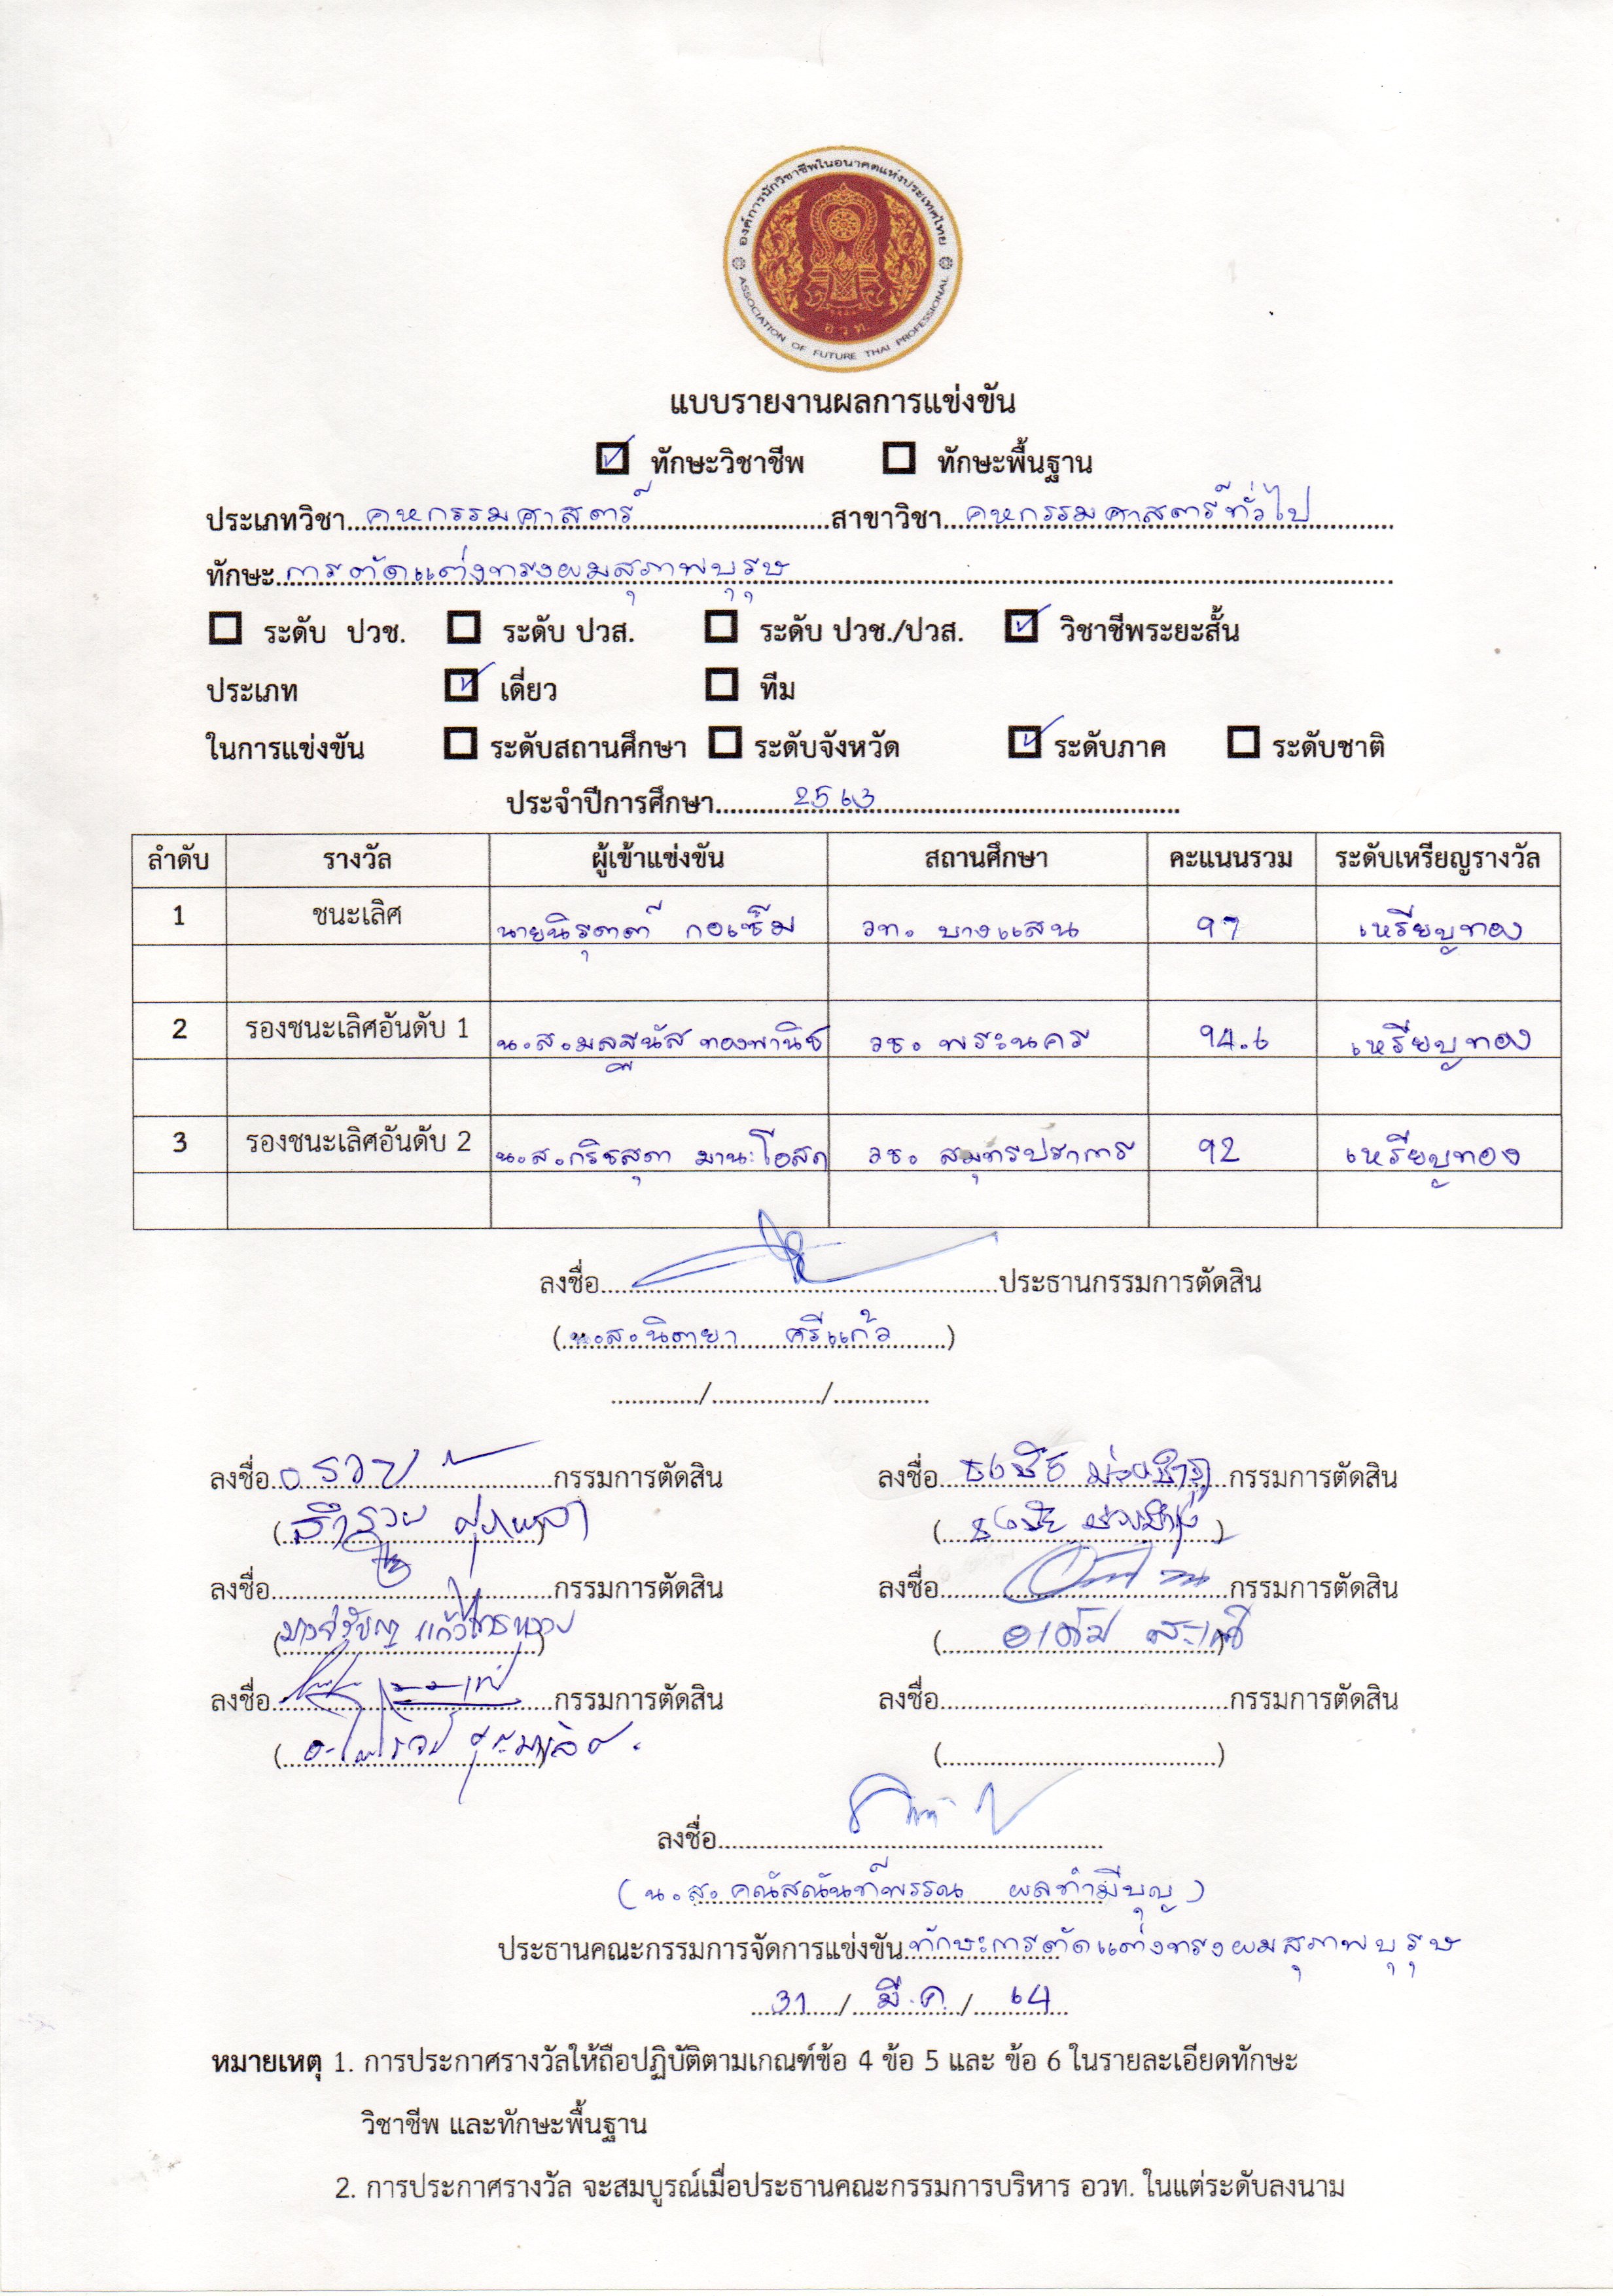 องค์การนักวิชาชีพในอนาคตแห่งประเทศไทย
อ ว ท.
ASSOCIATION OF FUTURE THAI PROFESSIONAL
แบบรายงานผลการแข่งขัน
ทักษะวิชาชีพ ทักษะพื้นฐาน
ประเภทวิชา คหกรรมศาสตร์ สาขาวิชา คหกรรมศาสตร์ทั่วไป
ทักษะ การตัดแต่งทรงผมสุภาพบุรุษ
ระดับ ปวช. ระดับ ปวส. ระดับ ปวช./ปวส. วิชาชีพระยะสั้น
ประเภท เดี่ยว ทีม
ในการแข่งขัน ระดับสถานศึกษา ระดับจังหวัด ระดับภาค ระดับชาติ
ประจำปีการศึกษา 2563
ลำดับ รางวัล ผู้เข้าแข่งขัน สถานศึกษา คะแนนรวม ระดับเหรียญรางวัล
1 ชนะเลิศ นายนิรุตต์ กอเซ็ม วท. บางแสน 97 เหรียญทอง
2 รองชนะเลิศอันดับ 1 น.ส. ทองพานิช วช. พระนคร 94.6 เหรียญทอง
3 รองชนะเลิศอันดับ 2 น.ส.กริชสุดา มานะโอสถ วช. สมุทรปราการ 92 เหรียญทอง
ลงชื่อ ประธานกรรมการตัดสิน
(น.ส.นิตยา ศรีแก้ว)
/ /
ลงชื่อ กรรมการตัดสิน ลงชื่อ กรรมการตัดสิน
ลงชื่อ กรรมการตัดสิน ลงชื่อ กรรมการตัดสิน
ลงชื่อ กรรมการตัดสิน ลงชื่อ กรรมการตัดสิน
ลงชื่อ
(น.ส. คณัสณันท์พรรณ ผลทำมีบุญ)
ประธานคณะกรรมการจัดการแข่งขัน ทักษะการตัดแต่งทรงผมสุภาพบุรุษ
31 / มี.ค. / 64
หมายเหตุ 1. การประกาศรางวัลให้ถือปฏิบัติตามเกณฑ์ข้อ 4 ข้อ 5 และ ข้อ 6 ในรายละเอียดทักษะ
วิชาชีพ และทักษะพื้นฐาน
2. การประกาศรางวัล จะสมบูรณ์เมื่อประธานคณะกรรมการบริหาร อวท. ในแต่ระดับลงนาม